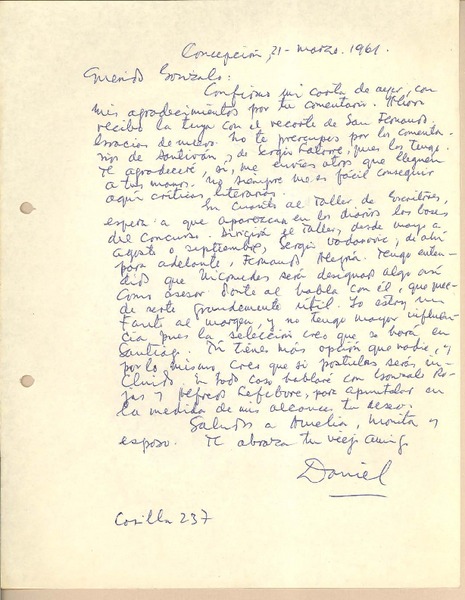 Concepción, 21-marzo. 1961.
Querido Gonzalo:
Confirmo mi carta de ayer, con
mis agradecimientos por tu comentario. Ahora
recibo la tuya con el recorte de San Fernando.
Gracias de nuevo. No te preocupes por los comenta-
rios de Santiván, y de Sergio Latorre, pues los tengo.
Te agradeceré, sí, me envíes otros que lleguen
a tus manos. No siempre me es fácil conseguir
aquí críticas literarias.
En cuanto al Taller de Escritores,
espera a que aparezcan en los diarios las bases
del Concurso. Dirigirá el Taller, desde mayo a
agosto o septiembre, Sergio Vodanovic, de ahí
para adelante, Fernando Alegría. Tengo enten-
dido que Nicomedes será designado algo así
como asesor. Ponte al habla con él, que pue-
de serte grandemente útil. Yo estoy un
tanto al margen, y no tengo mayor influen-
cia pues la selección creo que se hará en
Santiago. Tú tienes más opción que nadie, y
por lo mismo, creo que si postulas serás in-
cluido. En todo caso hablaré con Gonzalo Ro-
jas y Alfredo Lefebvre, para apuntalar en
la medida de mis alcances tu deseo.
Saludos a Amelia, Monita y
esposo. Te abraza tu viejo amigo
Daniel
Casilla 237